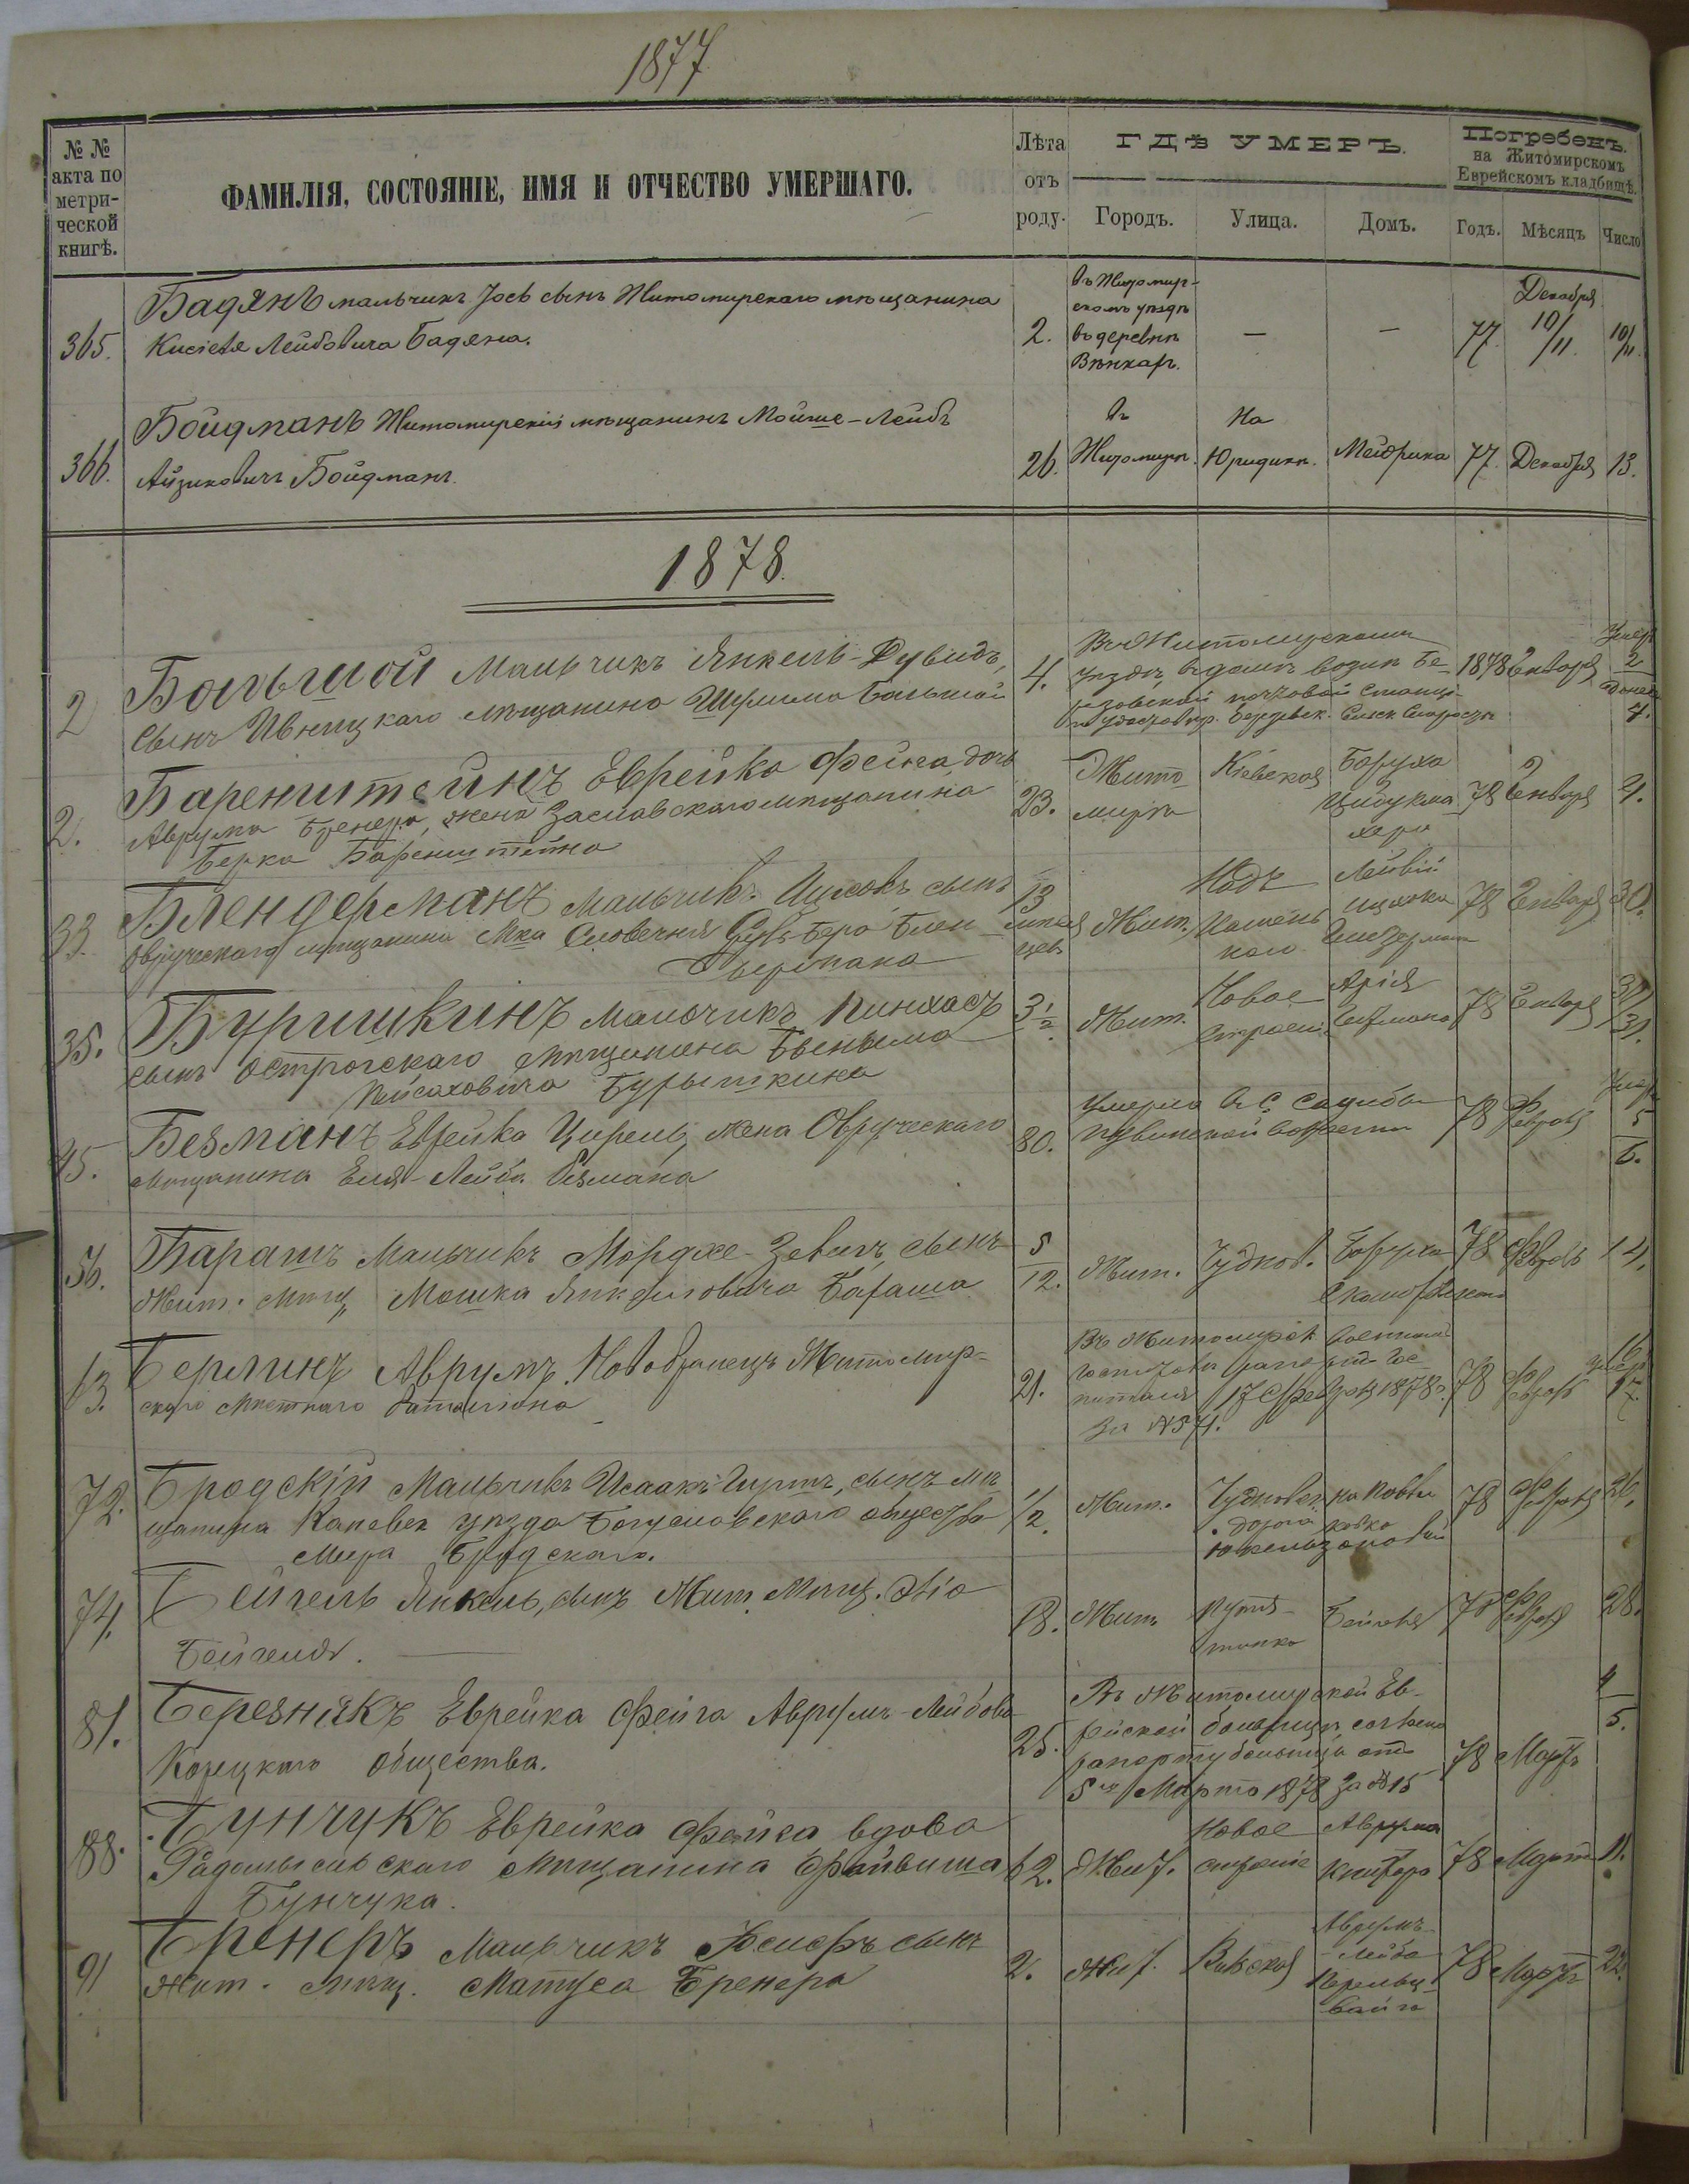 1877
№ №
акта по
метри-
ческой
книгѣ.
ФАМИЛІЯ, СОСТОЯНІЕ, ИМЯ И ОТЧЕСТВО УМЕРШАГО.
Лѣта
отъ
роду.
ГДѢ УМЕРЪ.
Городъ.
Улица.
Домъ.
Погребенъ.
на Житомирскомъ
Еврейскомъ кладбищѣ.
Годъ.
Мѣсяцъ
Число
365.
Бадянъ мальчикъ Іось сынъ Житомирскаго мѣщанина
Кисіеля Лейбовича Бадяна.
2.
въ Житомир-
скомъ уѣздѣ
въ деревнѣ
—
—
77.
Декабря
10/11.
10/11.
366.
Бойдманъ Житомирскій мѣщанинъ Мойше-Лейбъ
Айзиковичъ Бойдманъ.
26.
въ
Житомирѣ.
На
Юридикѣ.
Мейдрика
77.
Декабря
13.
1878.
2
Большой Мальчикъ Янкель-Дувидъ,
сынъ Ивницкаго мѣщанина Шулима Большой
4.
Въ Житомирскомъ
уѣздѣ,
почтовой станціи
1878
Января
2
4.
2.
Баренштейнъ Еврейка Фейга, дочь
Аврума Бренера, жена Заславскаго мѣщанина
Берка Баренштейна
23.
Жито
миръ
Кіевская
Боруха
78
Января
4.
33.
Блендерманъ Мальчикъ Ицхокъ сынъ
Овручскаго мѣщанина Мка Словечня Блен
дермана
13
Жит.
Надъ
Каменъ
кою
Лейвій
78
Января
30.
35.
Бурышкинъ Мальчикъ Пинхасъ
сынъ Острогскаго мѣщанина
Пейсаховича Бурышкина
3 1/2
Жит.
Новое
строен.
Арія
78
Января
30/31.
45.
Безманъ Еврейка Цирель, жена Овручскаго
мѣщанина Еля-Лейба Безмана
80.
Умерла въ С.
волости
78
Февраля
5
6.
56.
Барашъ Мальчикъ Мордхе-Зевель, сынъ
Жит. мѣщ. Мошка Янкелиовича Бараша
5
12.
Жит.
Чуднов.
Боруха
78
Февраль
14.
63.
Берлинъ Аврумъ. Новобранецъ Житомир-
скаго мѣстнаго баталіона
21.
Въ Житомирск. военномъ
питаля 17 Февраля 1878 г.
за № 571.
78
Февраль
16
17.
72.
Бродскій Мальчикъ Исаакъ-Гиршъ, сынъ мѣ
щанина Каневск уѣзда Богуславскаго общества
Меера Бродскаго.
1/2.
Жит.
Чудновск.
дорога
78
Февраля
26.
74.
Бейгель Янкель, сынъ Жит. мѣщ.
Бейгеля.
18.
Жит.
Путя-
тинка
Бейгеля
78
Февраля
28.
81.
Березнякъ Еврейка Фейга Аврумъ-Лейбова
Корецкаго общества.
25.
Въ Житомирской Ев-
рейской больницѣ согласно
рапорту больницы отъ
5го Марта 1878 за № 15
78
Мартъ
4
5.
88.
Бунчукъ Еврейка Фейга вдова
Радомысльскаго Мѣщанина Файвиша
Бунчука.
62.
Жит.
Новое
строеніе
Аврума
78
Мартъ
11.
91
Бренеръ Мальчикъ сынъ
Жит. мѣщ. Матуса Бренера
2.
Жит.
Вильская
Аврумъ-
Лейба
78
Мартъ
22.